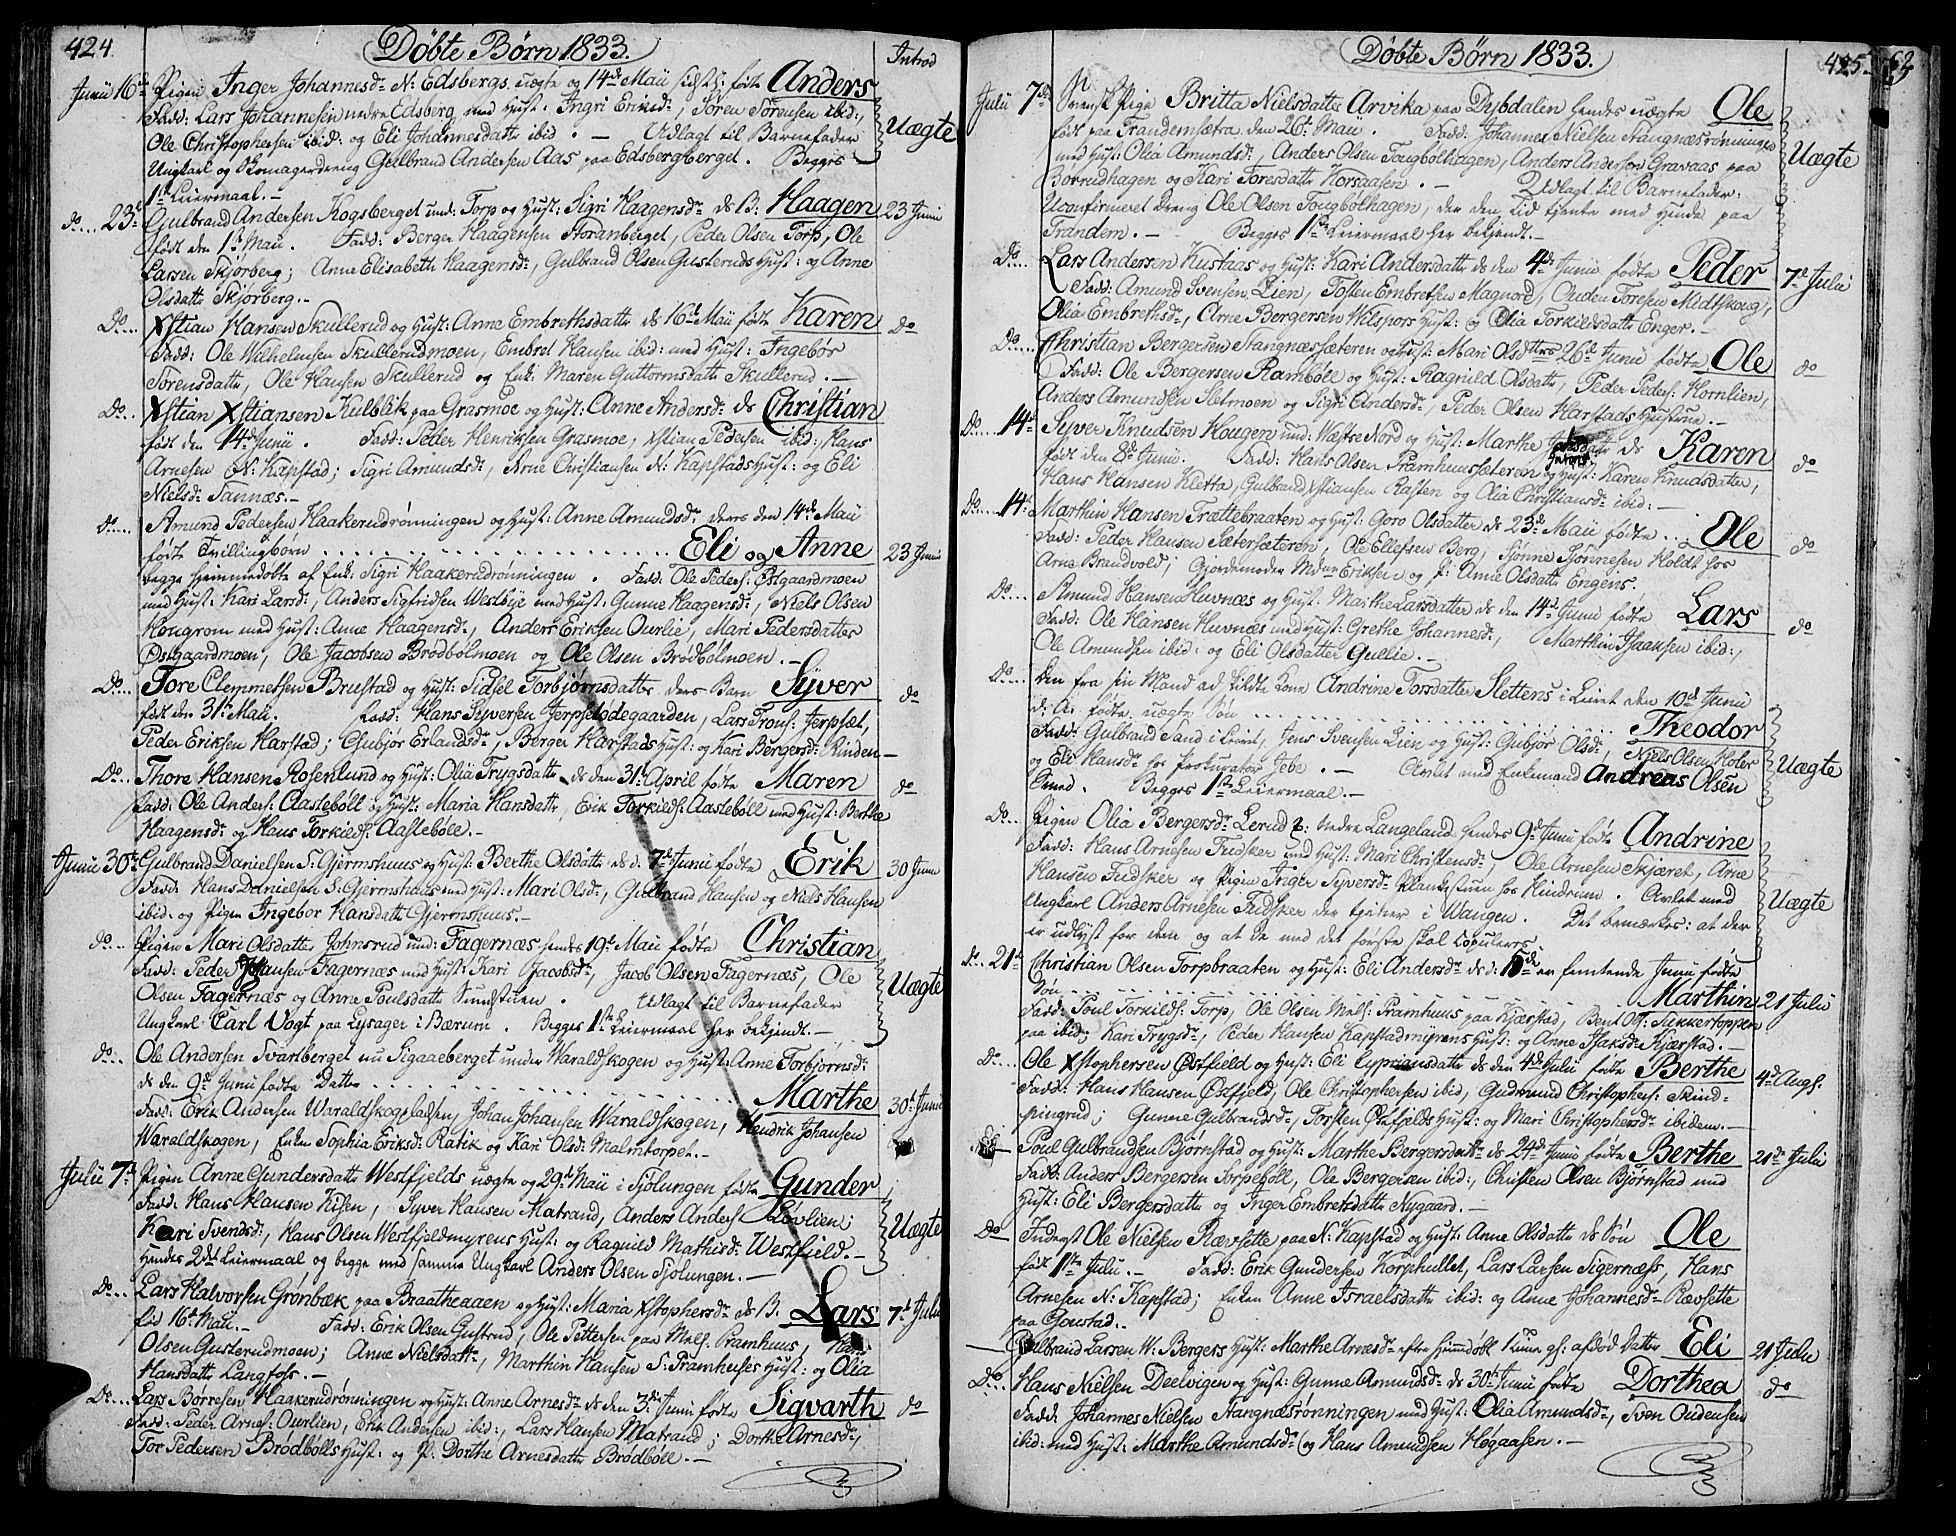 424.
Døbte Børn 1833.
Introd
Junii 16de Pigen Inger Johannesdr N: Edsbergs uægte og 14de Maii sidstl: født Anders
Fadd: Lars Johannesen nedre Edsberg med Hust: Ingri Eriksdr, Sören Sörensen ibid:,
Ole Christophersen ibid: og Eli Johannesdatter ibid. — Udlagt til Barnefader Uægte
Ungkarl og Skomagerdreng Gulbrand Andersen Aas paa Edsbergberget. Begges
1ste Leiermaal. —
do... 23de Gulbrand Andersen Kogsberget und: Torp og Hust: Sigri Haagensdr ds B. Haagen 23 Junii
født den 1ste Maii. Fadd: Berger Haagensen Storanberget, Peder Olsen Torp, Ole
Larsen Skjörberg; Anne Elisabeth Haagensdr, Gulbrand Olsen Gusteruds Hust: og Anne
Olsdatter Skjörberg. —
Do... Xstian Hansen Skullerud og Hust: Anne Embrethsdatter ds 16de Maii födte Karen do
Fadd: Ole Wilhelmsen Skullerudmoen, Embret Hansen ibid: med Hust: Ingebör
Sörensdatter, Ole Hansen Skullerud og Enk: Maren Guttormsdatter Skullerud. —
Do... Xstian Xstiansen Kulblik paa Grasmoe og Hust: Anne Andersdr ds Christian
født den 14de Junii. Fadd: Peder Henriksen Grasmoe, Xstian Pedersen ibid:, Hans
Arnesen N: Kapstad; Sigri Amundsdr, Arne Christiansen N: Kapstads Hust: og Eli
Nielsdr Sannæs. —
do.... Amund Pedersen Haakerudrönningen og Hust: Anne Amundsdr deres den 14de Maii
fødte Tvillingbörn ........ Eli og Anne 23 Junii
begge hjemmedöbte af Enk: Sigri Haakerudrönningen. Fadd: Ole Peders: Östgaardmoen
med Hust: Kari Larsdr, Anders Sigfridsen Westbye med Hust: Gunne Haagensdr, Niels Olsen
Kougrom med Hust: Anne Haagensdr, Anders Eriksen Ourlie, Mari Pedersdatter
Östgaardmoen, Ole Jacobsen Brödbölmoen og Ole Olsen Brödbölmoen. —
Do... Tore Clemmetsen Brustad og Hust: Sidsel Torbjörnsdatter deres Barn Syver do
født den 31te Maii. Fadd: Hans Syversen Jerpsetödegaarden, Lars Trons: Jerpset,
Peder Eriksen Harstad; Gubjör Erlandsdr, Berger Harstads Hust: og Kari Bergersdr Rinden —
Do... Thore Hansen Rosenlund og Hust: Olia Trygsdatter ds den 31te April födte Maren do
Fadd: Ole Anders: Aasteböll og Hust: Maria Hansdatter, Erik Torkilds: Aasteböll med Hust: Berthe
Haagensdr og Hans Torkilds: Aasteböle. —
Junii 30te Gulbrand Danielsen S: Gjermshuus og Hust: Berthe Olsdatter ds d. 7de Junii födte Erik 30 Junii
Fadd: Hans Danielsen S: Gjermshuus med Hust: Mari Olsdr, Gulbrand Hansen og Niels Hansen
ibid: og Pigen Ingebor Hansdatter Gjermshuus. —
do... Pigen Mari Olsdatter Johnsrud und: Fagernæs hendes 19de Maii födte Christian
Fadd: Peder Johansen Fagernæs med Hust: Kari Jacobsdr, Jacob Olsen Fagernæs, Ole
Olsen Fagernæs og Anne Poulsdatter Sundstuen. Udlagt til Barnefader Uægte
Ungkarl Carl Vogt paa Lysager i Bærum. Begges 1ste Leiermaal her bekjendt. —
do... Ole Andersen Svartberget nu Sigaaeberget under Waraldskogen og Hust: Anne Torbjörnsdr
ds den 9de Junii födte Datter ........ Marthe 30te Junii
Fadd: Erik Andersen Waraldskogsladsen, Johan Johansen Waraldskogen, Hendrik Johansen
Waraldskogen, Enken Sophia Eriksdr Ratik og Kari Olsdr Malmtorpet. —
Julii 7de Pigen Anne Gundersdatter Westfjelds uægte og 29de Maii i Sjölungen födte Gunder
Fadd: Hans Hansen Hisen, Syver Hansen Matrand, Anders Anders: Lövlien;
Kari Svendsdr, Hans Olsen Westfjeldmyrens Hust: og Ragnild Mathisdr Westfjeld. — Uægte
Hendes 2det Leiermaal og begge med samme Ungkarl Anders Olsen Sjölungen. —
Do... Lars Halvorsen Grönbæk paa Braatheaaen og Hust: Maria Xstophersdr ds B: Lars 7de Julii
föd 16de Maii. — Fadd: Erik Olsen Gustrud, Ole Pettersen paa Mels: Pramhuus,
Olsen Gusterudmoen; Anne Nielsdatter, Marthin Hansen S: Pramhuses Hust: og Olia
Hansdatter Langfoss. —
Do.... Lars Börresen Haakerudrönningen og Hust: Anne Arnesdr ds den 3die Junii födte Sigvarth do
Fadd: Peder Arnes: Ourlien, Erik Andersen ibid:, Lars Hansen Matrand; Dorthe Arnesdr,
Tor Pedersen Brödbölls Hust: og P: Dorthe Arnesdatter Brödböll. —
Døbte Børn 1833.
425.
62
Julii 7de Svensk Pige Britta Nielsdatter Arvika paa Dybdalen hendes uægte Ole
født paa Trandemsætra den 26de Maii. Fadd: Johannes Nielsen Stangnæsrönningen
med Hust: Olia Amundsdr, Anders Olsen Tougbölhagen, Anders Anderson Gravaas paa Uægte
Borrudhagen og Kari Toresdatter Korsaasen. — Udlagt til Barnefader:
Uconfirmeret Dreng Ole Olsen Tougbölhagen, der den Tid tjente med hende paa
Trandem. — Begges 1ste Leiermaal her bekjendt. —
Do... Lars Andersen Kustaas og Hust: Kari Andersdatter ds den 4de Junii födte Peder 7de Julii
Fadd: Amund Svensen Lien, Tosten Embretsen Magnord, Ouden Toresen Midtskoug,
Olia Embrethsdr, Arne Bergersen Wilspors Hust: og Olia Torkildsdatter Enger. —
Do.... Christian Bergersen Stangnæssæteren og Hust: Mari Olsdtters 26de Junii födte Ole do
Fadd: Ole Bergersen Ramböll og Hust: Ragnild Olsdatter, Peder Peders: Hornlien,
Anders Amundsen Sletmoen og Sigri Andersdr, Peder Olsen Harstads Hustrue. —
Do.... 14de Syver Knudsen Hougen und: Wæstre Nord og Hust: Marthe ds Karen
født den 8de Junii. Fadd: Hans Olsen Pramhuussæteren og Hust: Karen Knudsdatter, do
Hans Hansen Kletta, Gulbrand Xstiansen Rasten og Olia Christiansdr ibid: —
Do.... 14de Marthin Hansen Trættebraaten og Hust: Goro Olsdatter ds 23de Maii födte .. Ole do
Fadd: Peder Hansen Sætersæteren, Ole Ellefsen Berg, Sjönne Sjönnesen Holdt hos
Arne Brandvold, Gjordemoder Mdme Eriksen og P: Anne Olsdatter Engens.
Do... Amund Hansen Huvnæs og Hust: Marthe Larsdatter ds den 14de Junii födte Lars do
Fadd: Ole Hansen Huvnæs med Hust: Grethe Johannesdr, Marthin Isaaksen ibid:,
Ole Amundsen ibid: og Eli Olsdatter Gullie. —
Do... Den fra sin Mand ad skildte Kone Andrine Torsdatter Slettens i Leiret den 10de Junii
d: A: födte uægte Sön ........ Theodor
Fadd: Gulbrand Sand i Leiret, Jens Svensen Lien og Hust: Gubjör Olsdr, Niels Olsen Holer
og Eli Hansdr hos Prokurator Jebe. — Avlet med Enkemand Andreas Olsen Uægte
Omed. Begges 1ste Leiermaal. —
Do... Pigen Olia Bergersdr Lerud nedre Langeland hendes 9de Junii födte Andrine
Fadd: Hans Arnesen Fudsker med Hust: Mari Christensdr, Ole Arnesen Skjæret, Arne
Hansen Fudsker og Pigen Inger Syversdr Plankestuen hos Hindrum. Avlet med Uægte
Ungkarl Anders Arnesen Fudsker der tjener i Wangen. Det bemærkes: at der
er udlyst for dem og at de med det første skal Copuleres.
do.. 21de Christian Olsen Torpbraaten og Hust: Eli Andersdr ds d: 15de er femtende Junii födte
Sön ........ Marthin 21 Julii
Fadd: Poul Torkilds: Torp, Ole Olsen Mels: Pramhuus paa Kjærstad, Bent Ols: Sukkertoppen
paa ibid; Kari Trygsdr, Peder Hansen Kapstadmyrens Hust: og Anne Isaksdr Kjærstad. —
Do.... Ole Xstophersen Östfield og Hust: Eli Cypriansdatter ds den 4de Julii födte Berthe 4de Augs.
Fadd: Hans Hansen Östfjeld, Ole Christophersen ibid, Gudmund Christophers: Skind-
pingrud; Gunne Gulbrandsdr, Torsten Östfjelds Hust: og Mari Christophersdr ibidem. —
Poul Gulbrandsen Björnstad og Hust: Marthe Bergersdatter ds 24de Junii födte Berthe 21de Julii
Fadd: Anders Bergersen Torpeböll, Ole Bergersen ibid:, Christen Olsen Björnstad med
Hust: Eli Bergersdatter og Inger Embretsdatter Nygaard. —
Do Inderst Ole Nielsen Rævsette paa N: Kapstad og Hust: Anne Olsdatter ds Sön Ole
født 1ste Julii. — Fadd: Erik Gundersen Korphullet, Lars Larsen Sigernæss, Hans
Arnesen N: Kapstad; Enken Anne Israelsdatter ibid: og Anne Johannesdr Rævsette
paa Goustad. —
Gulbrand Larsen W: Bergers Hust: Marthe Arnesdr efter hjemdöbt afdöd Datter Eli 21 Julii
Do... Hans Nielsen Deelvigen og Hust: Gunne Amundsdr ds 30te Junii födte Dorthea do
Fadd: Johannes Nielsen Stangnæsrönningen med Hust: Olia Amundsdr, Sven Oudensen
ibid: med Hust: Marthe Amundsdr og Hans Amundsen Hogaasen. —